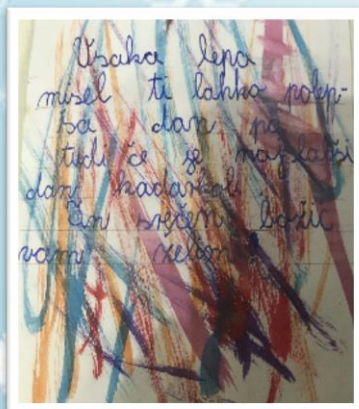 Vsaka lepa
misel ti lahko polep-
ša dan pa
tudi če je najslabši
dan kadarkoli.
in srečen božič
vam želim